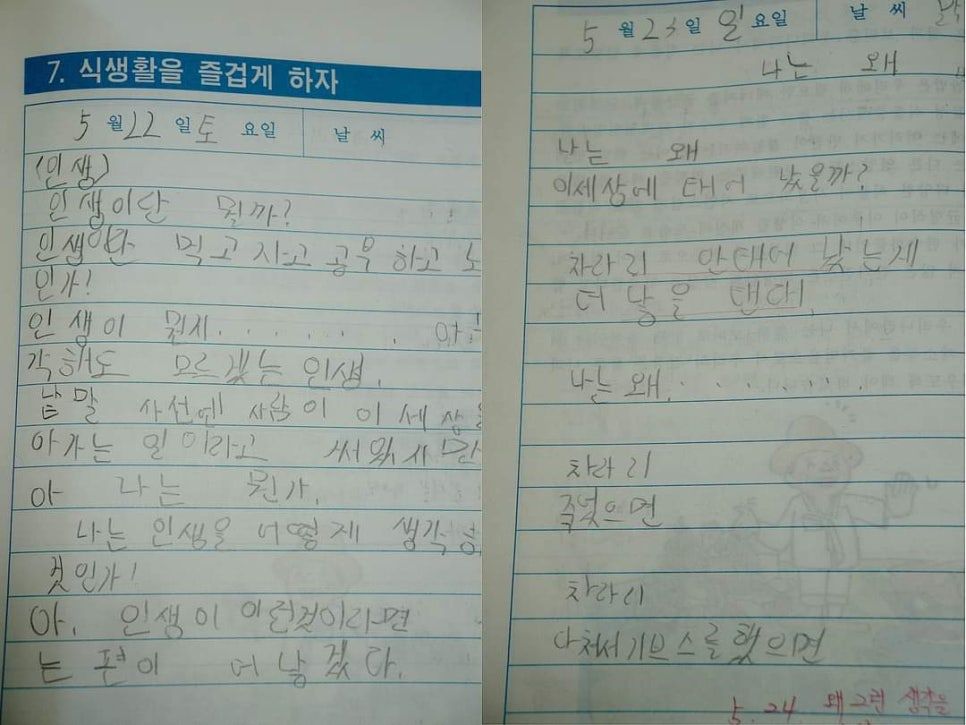 7. 식생활을 즐겁게 하자
5 월 22 일 토 요일 날 씨
(인생)
인생이란 뭘까?
인생이란 먹고 자고 공부 하고 노
인가!
인생이 뭔지. . . . . . . 아
각해도 모르겠는 인생.
낱말 사전엔 사람이 이 세상을
아가는 일이라고 써있지만
아 나는 뭔가.
나는 인생을 어떻게 생각
것인가!
아. 인생이 이런것이라면
는 편이 더 낳겠다.
5 월 23 일 일 요일 날 씨
나는 왜
나는 왜
이세상에 태어 났을까?
차라리 안태어 낳는게
더 낳을 탠대!
나는 왜. . . . . . . .
차라리
죽었으면
차라리
다쳐서 기브스를 했으면
5. 24 왜 그런 생각을